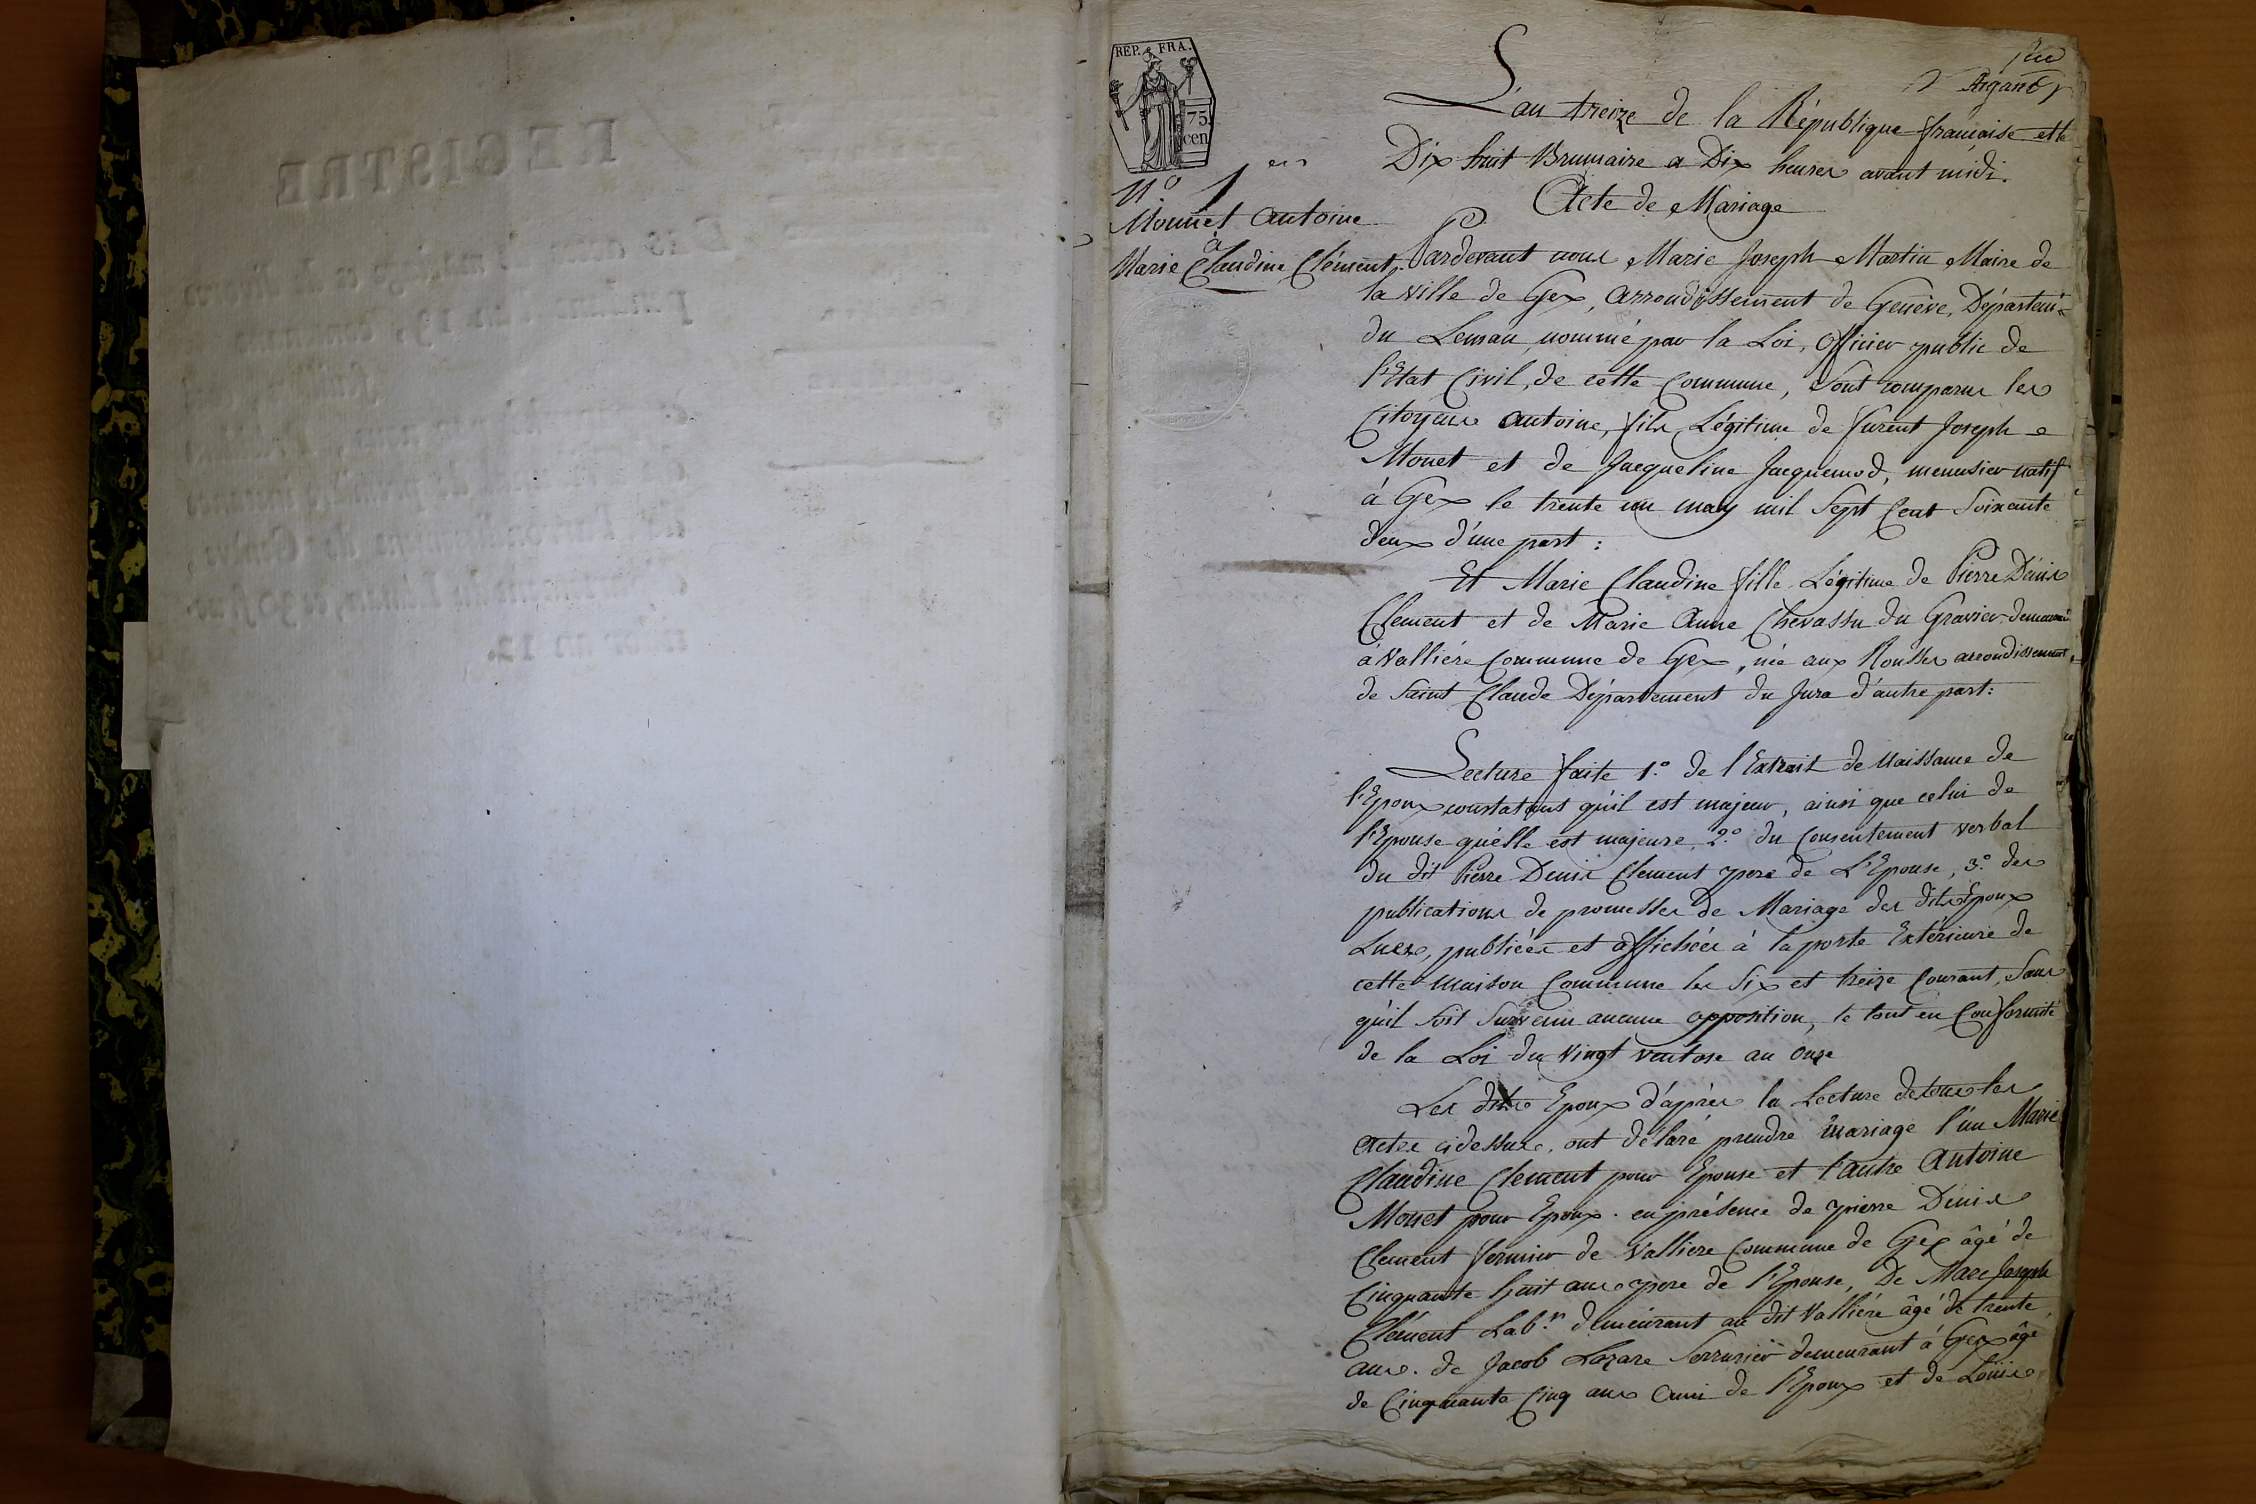 REP. FRA.
75.
cen
N.° 1.er
Mounet Antoine
à
Marie Claudine Clément.
L'an treize de la République française et le
Dix huit Brumaire a Dix heures avant midi.
Acte de Mariage
Pardevant nous Marie Joseph Martin Maire de
la ville de Gex, arrondissement de Genève, Département
du Leman, nommé par la Loi, officier public de
l'Etat Civil, de cette Commune, sont comparus les
Citoyens Antoine, fils Légitime de furent Joseph
Monet et de Jacqueline Jacquemod, menusier natif
à Gex le trente un may mil Sept Cent Soixante
deux d'une part :
Et Marie Claudine fille Légitime de Pierre Denis
Clement et de Marie Anne Chevassu du Gravier demeurant
à Vallière Commune de Gex, née aux Rousses arrondissement
de Saint Claude Département du Jura d'autre part :
Lecture faite 1.° de l'Extrait de Naissance de
l'Epoux constatant qu'il est majeur, ainsi que celui de
l'Epouse qu'elle est majeure, 2.° du Consentement verbal
du dit Pierre Denis Clement pere de L'Epouse, 3.° des
publications de promesses de Mariage des dits Epoux
Lues, publiées et affichées à la porte Extérieure de
cette maison Commune les Six et treize Courant, Sans
qu'il soit Survenu aucune opposition, le tout en Conformité
de la Loi du Vingt ventose an onze
Les dits Epoux d'après la Lecture de tous les
actes cidessus, ont déclaré prendre mariage l'un Marie
Claudine Clement pour Epouse et l'autre Antoine
Monet pour Epoux. en présence de pierre Denis
Clement fermier de Valliere Commune de Gex âgé de
Cinquante huit ans pere de l'Epouse, De Marc Joseph
Clément Lab.r demeurant au dit Vallière âgé de trente
ans. de Jacob Lazare Serrurier demeurant à Gex âgé
de Cinquante Cinq ans Ami de l'Epoux et de Louis